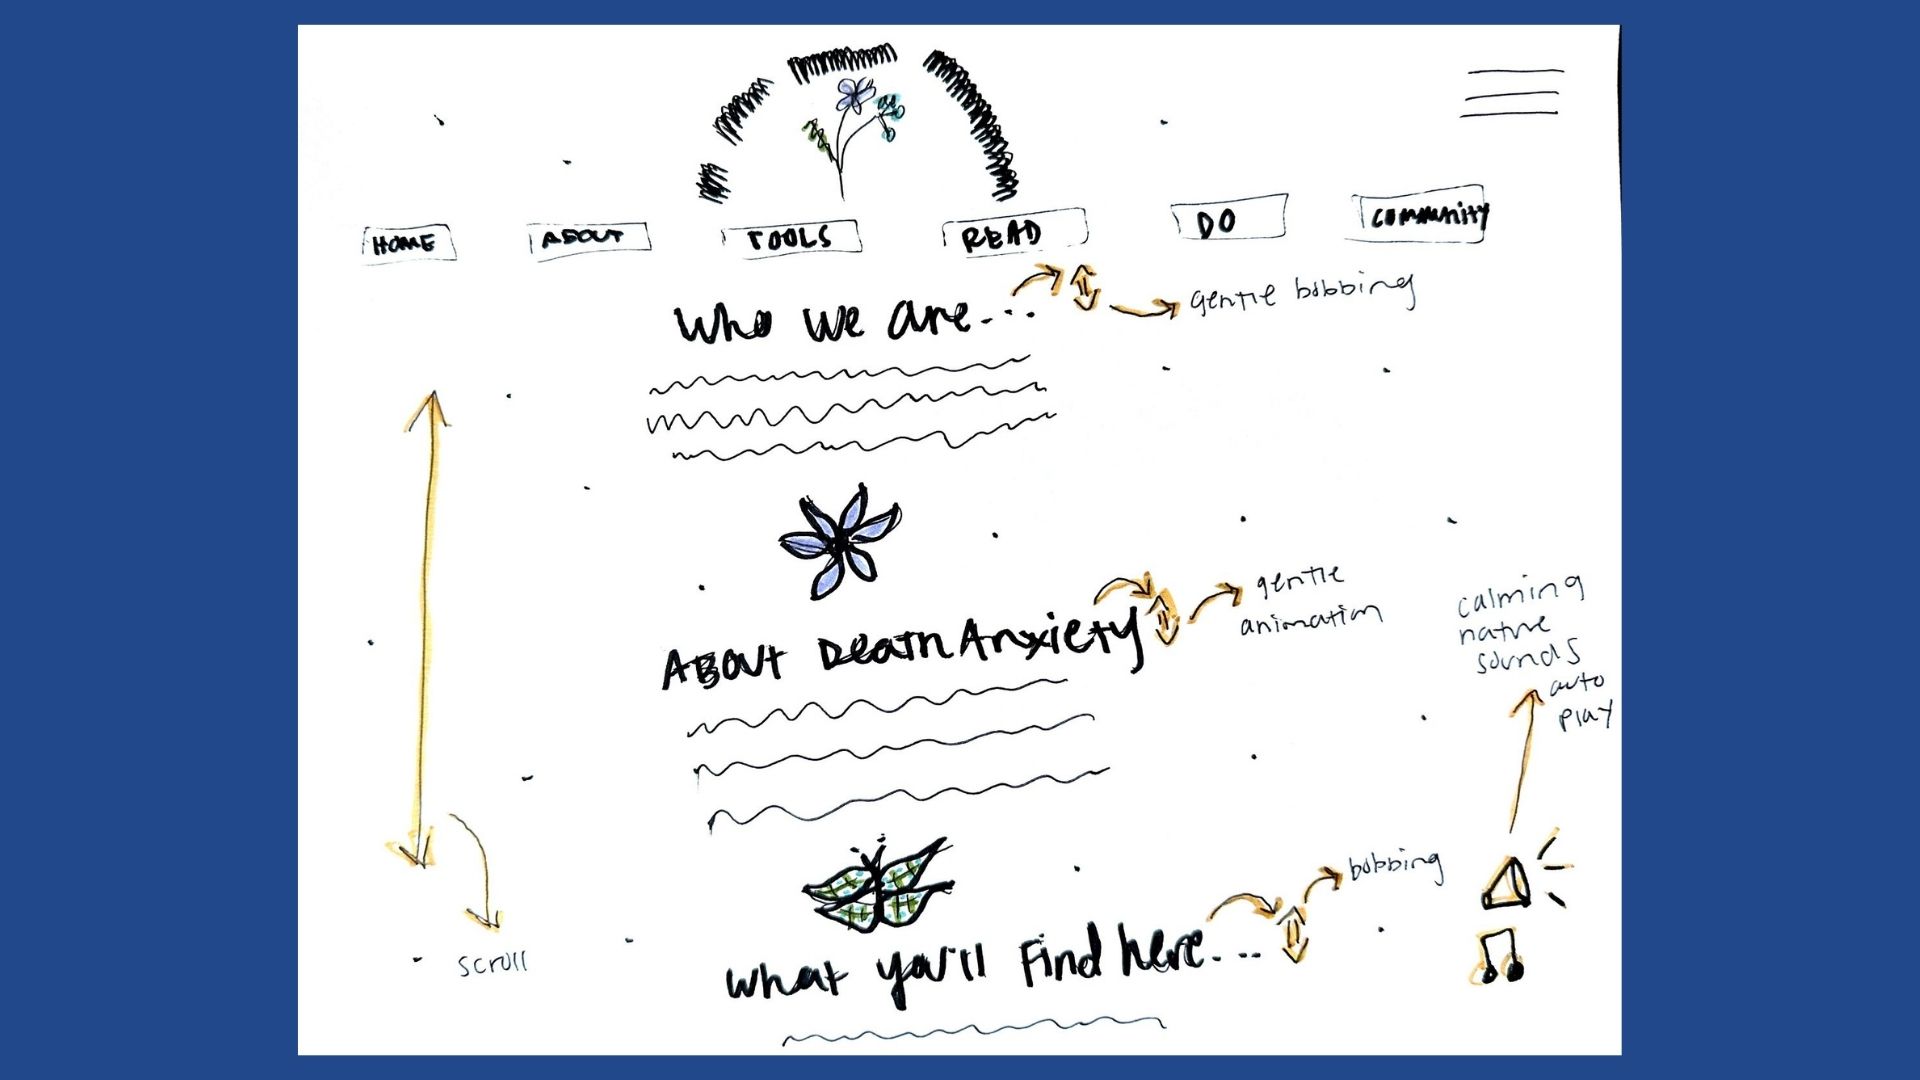 HOME
ABOUT
TOOLS
READ
DO
COMMUNITY
Who we are...
gentle bobbing
About Death Anxiety
gentle
animation
calming
nature
sounds
auto
play
What you'll Find here...
bobbing
scroll